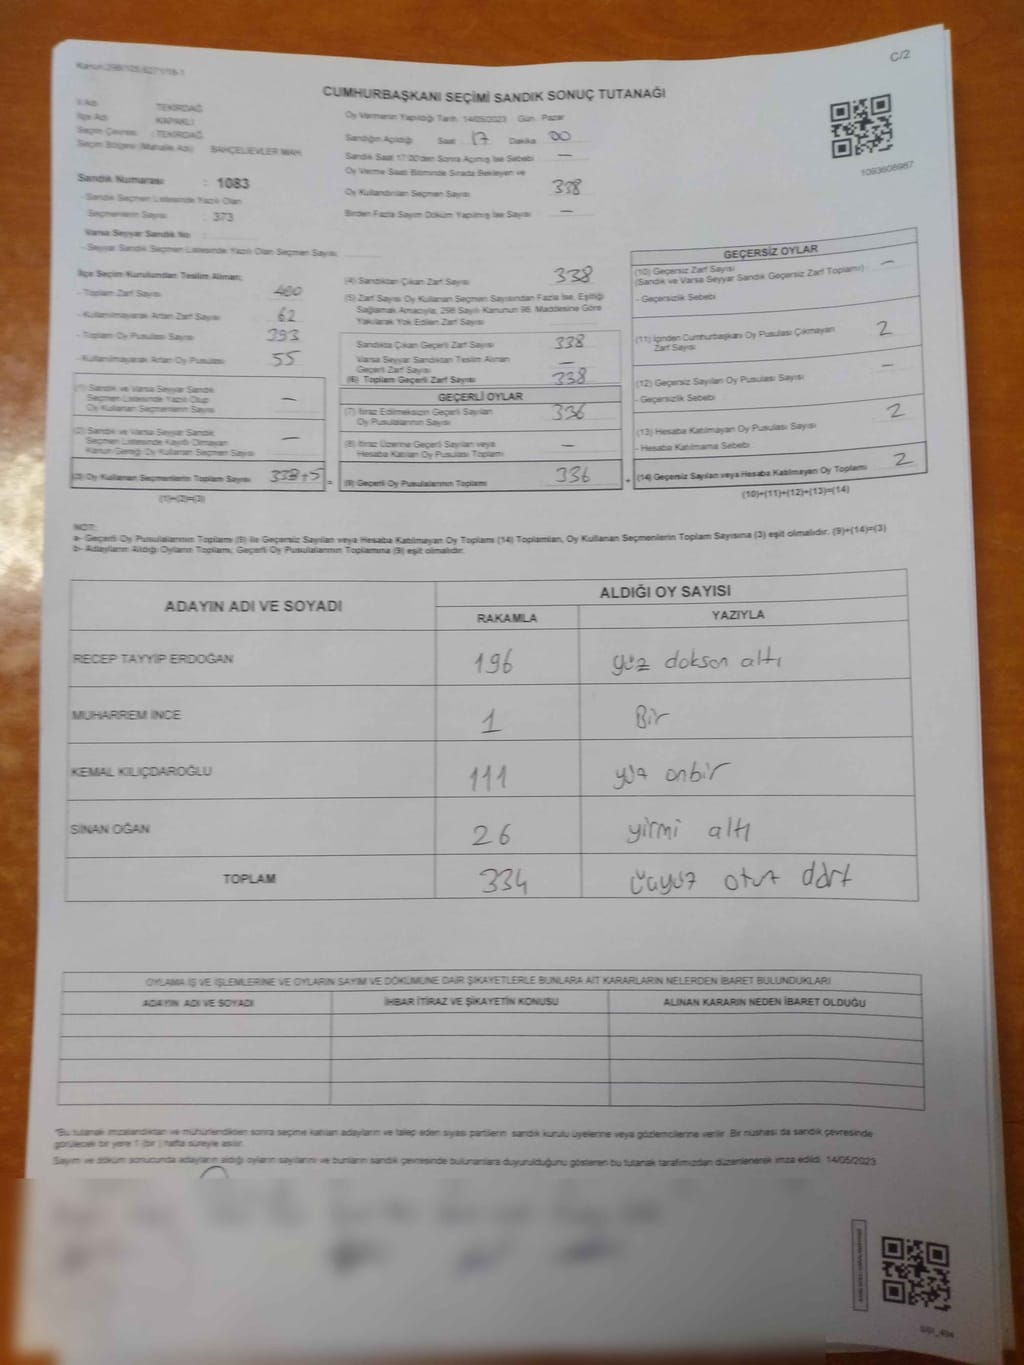 Kanun:298/105,6271/18-1
C/2
CUMHURBAŞKANI SEÇİMİ SANDIK SONUÇ TUTANAĞI
İl Adı : TEKİRDAĞ
İlçe Adı : KAPAKLI
Seçim Çevresi : TEKİRDAĞ
Seçim Bölgesi (Mahalle Adı) BAHÇELİEVLER MAH.
Sandık Numarası : 1083
- Sandık Seçmen Listesinde Yazılı Olan
Seçmenlerin Sayısı : 373
Varsa Seyyar Sandık No :
- Seyyar Sandık Seçmen Listesinde Yazılı Olan Seçmen Sayısı:
Oy Vermenin Yapıldığı Tarih: 14/05/2023 Gün: Pazar
Sandığın Açıldığı Saat 17 Dakika 00
Sandık Saat 17:00'den Sonra Açmış İse Sebebi —
Oy Verme Saati Bitiminde Sırada Bekleyen ve
Oy Kullandırılan Seçmen Sayısı 338
Birden Fazla Sayım Döküm Yapılmış İse Sayısı —
1093608987
İlçe Seçim Kurulundan Teslim Alınan;
- Toplam Zarf Sayısı 400
- Kullanılmayarak Artan Zarf Sayısı 62
- Toplam Oy Pusulası Sayısı 393
- Kullanılmayarak Artan Oy Pusulası 55
(1) Sandık ve Varsa Seyyar Sandık
Seçmen Listesinde Yazılı Olup
Oy Kullanan Seçmenlerin Sayısı —
(2) Sandık ve Varsa Seyyar Sandık
Seçmen Listesinde Kayıtlı Olmayan
Kanun Gereği Oy Kullanan Seçmen Sayısı —
(3) Oy Kullanan Seçmenlerin Toplam Sayısı 338+5 =
(1)+(2)=(3)
(4) Sandıktan Çıkan Zarf Sayısı 338
(5) Zarf Sayısı Oy Kullanan Seçmen Sayısından Fazla İse, Eşitliği
Sağlamak Amacıyla, 298 Sayılı Kanunun 98. Maddesine Göre
Yakılarak Yok Edilen Zarf Sayısı
Sandıkta Çıkan Geçerli Zarf Sayısı 338
Varsa Seyyar Sandıktan Teslim Alınan
Geçerli Zarf Sayısı —
(6) Toplam Geçerli Zarf Sayısı 338
GEÇERLİ OYLAR
(7) İtiraz Edilmeksizin Geçerli Sayılan
Oy Pusulalarının Sayısı 336
(8) İtiraz Üzerine Geçerli Sayılan veya
Hesaba Katılan Oy Pusulası Toplamı —
(9) Geçerli Oy Pusulalarının Toplamı 336 +
GEÇERSİZ OYLAR
(10) Geçersiz Zarf Sayısı —
(Sandık ve Varsa Seyyar Sandık Geçersiz Zarf Toplamı)
- Geçersizlik Sebebi
(11) İçinden Cumhurbaşkanı Oy Pusulası Çıkmayan 2
Zarf Sayısı
(12) Geçersiz Sayılan Oy Pusulası Sayısı —
- Geçersizlik Sebebi
(13) Hesaba Katılmayan Oy Pusulası Sayısı 2
- Hesaba Katılmama Sebebi
(14) Geçersiz Sayılan veya Hesaba Katılmayan Oy Toplamı 2
(10)+(11)+(12)+(13)=(14)
NOT:
a- Geçerli Oy Pusulalarının Toplamı (9) ile Geçersiz Sayılan veya Hesaba Katılmayan Oy Toplamı (14) Toplamları, Oy Kullanan Seçmenlerin Toplam Sayısına (3) eşit olmalıdır. (9)+(14)=(3)
b- Adayların Aldığı Oyların Toplamı, Geçerli Oy Pusulalarının Toplamına (9) eşit olmalıdır.
ADAYIN ADI VE SOYADI
ALDIĞI OY SAYISI
RAKAMLA YAZIYLA
RECEP TAYYİP ERDOĞAN 196 yüz doksan altı
MUHARREM İNCE 1 Bir
KEMAL KILIÇDAROĞLU 111 yüz onbir
SİNAN OĞAN 26 yirmi altı
TOPLAM 334 üçyüz otuz dört
OYLAMA İŞ VE İŞLEMLERİNE VE OYLARIN SAYIM VE DÖKÜMÜNE DAİR ŞİKAYETLERLE BUNLARA AİT KARARLARIN NELERDEN İBARET BULUNDUKLARI
ADAYIN ADI VE SOYADI İHBAR İTİRAZ VE ŞİKAYETİN KONUSU ALINAN KARARIN NEDEN İBARET OLDUĞU
*Bu tutanak imzalandıktan ve mühürlendikten sonra seçime katılan adayların ve talep eden siyasi partilerin sandık kurulu üyelerine veya gözlemcilerine verilir. Bir nüshası da sandık çevresinde
görülecek bir yere 1 (bir) hafta süreyle asılır.
Sayım ve döküm sonucunda adayların aldığı oyların sayılarını ve bunların sandık çevresinde bulunanlara duyurulduğunu gösteren bu tutanak tarafımızdan düzenlenerek imza edildi. 14/05/2023